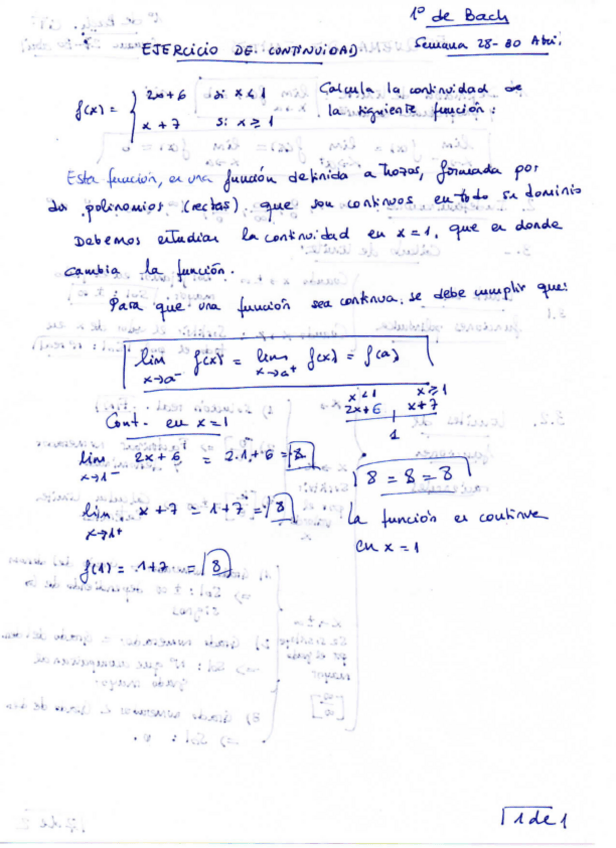 1º de Bach
EJERCICIO DE CONTINUIDAD
Semana 28-30 Abri.
f(x) = { 2x+6 si x < 1
x + 7 si x ≥ 1
Calcula la continuidad de
la siguiente función:
Esta función, es una función definida a trozos, formada por
dos polinomios (rectas) que son continuos en todo su dominio
Debemos estudiar la continuidad en x = 1, que es donde
cambia la función.
Para que una función sea continua, se debe cumplir que:
lim x→a⁻ f(x) = lim x→a⁺ f(x) = f(a)
x < 1 x ≥ 1
2x+6 x+7
1
Cont. en x = 1
lim x→1⁻ 2x + 6 = 2·1 + 6 = 8
lim x→1⁺ x + 7 = 1+7 = 8
f(1) = 1+7 = 8
8 = 8 = 8
La función es continua
en x = 1
1 de 1